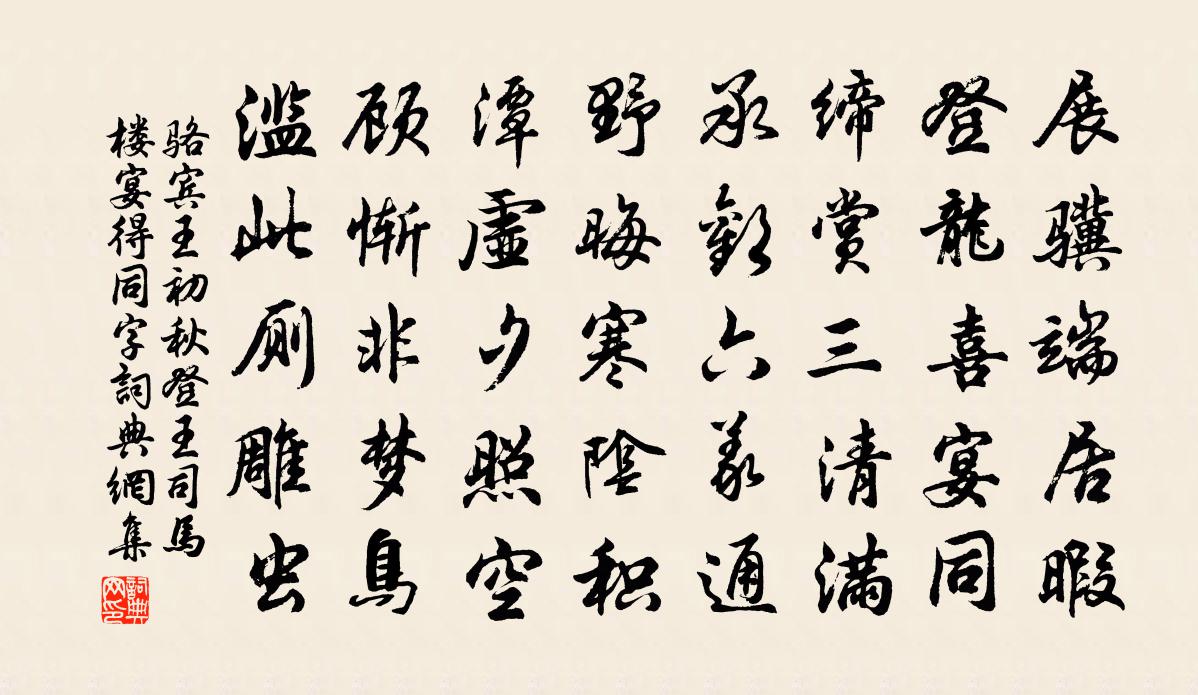 展骥端居暇
登龍喜宴同
缔赏三清满
承歡六義通
野晦寒陰积
潭虚夕照空
顾惭非梦鳥
滥此厕雕虫
骆宾王初秋登王司馬
楼宴得同字詞典網集